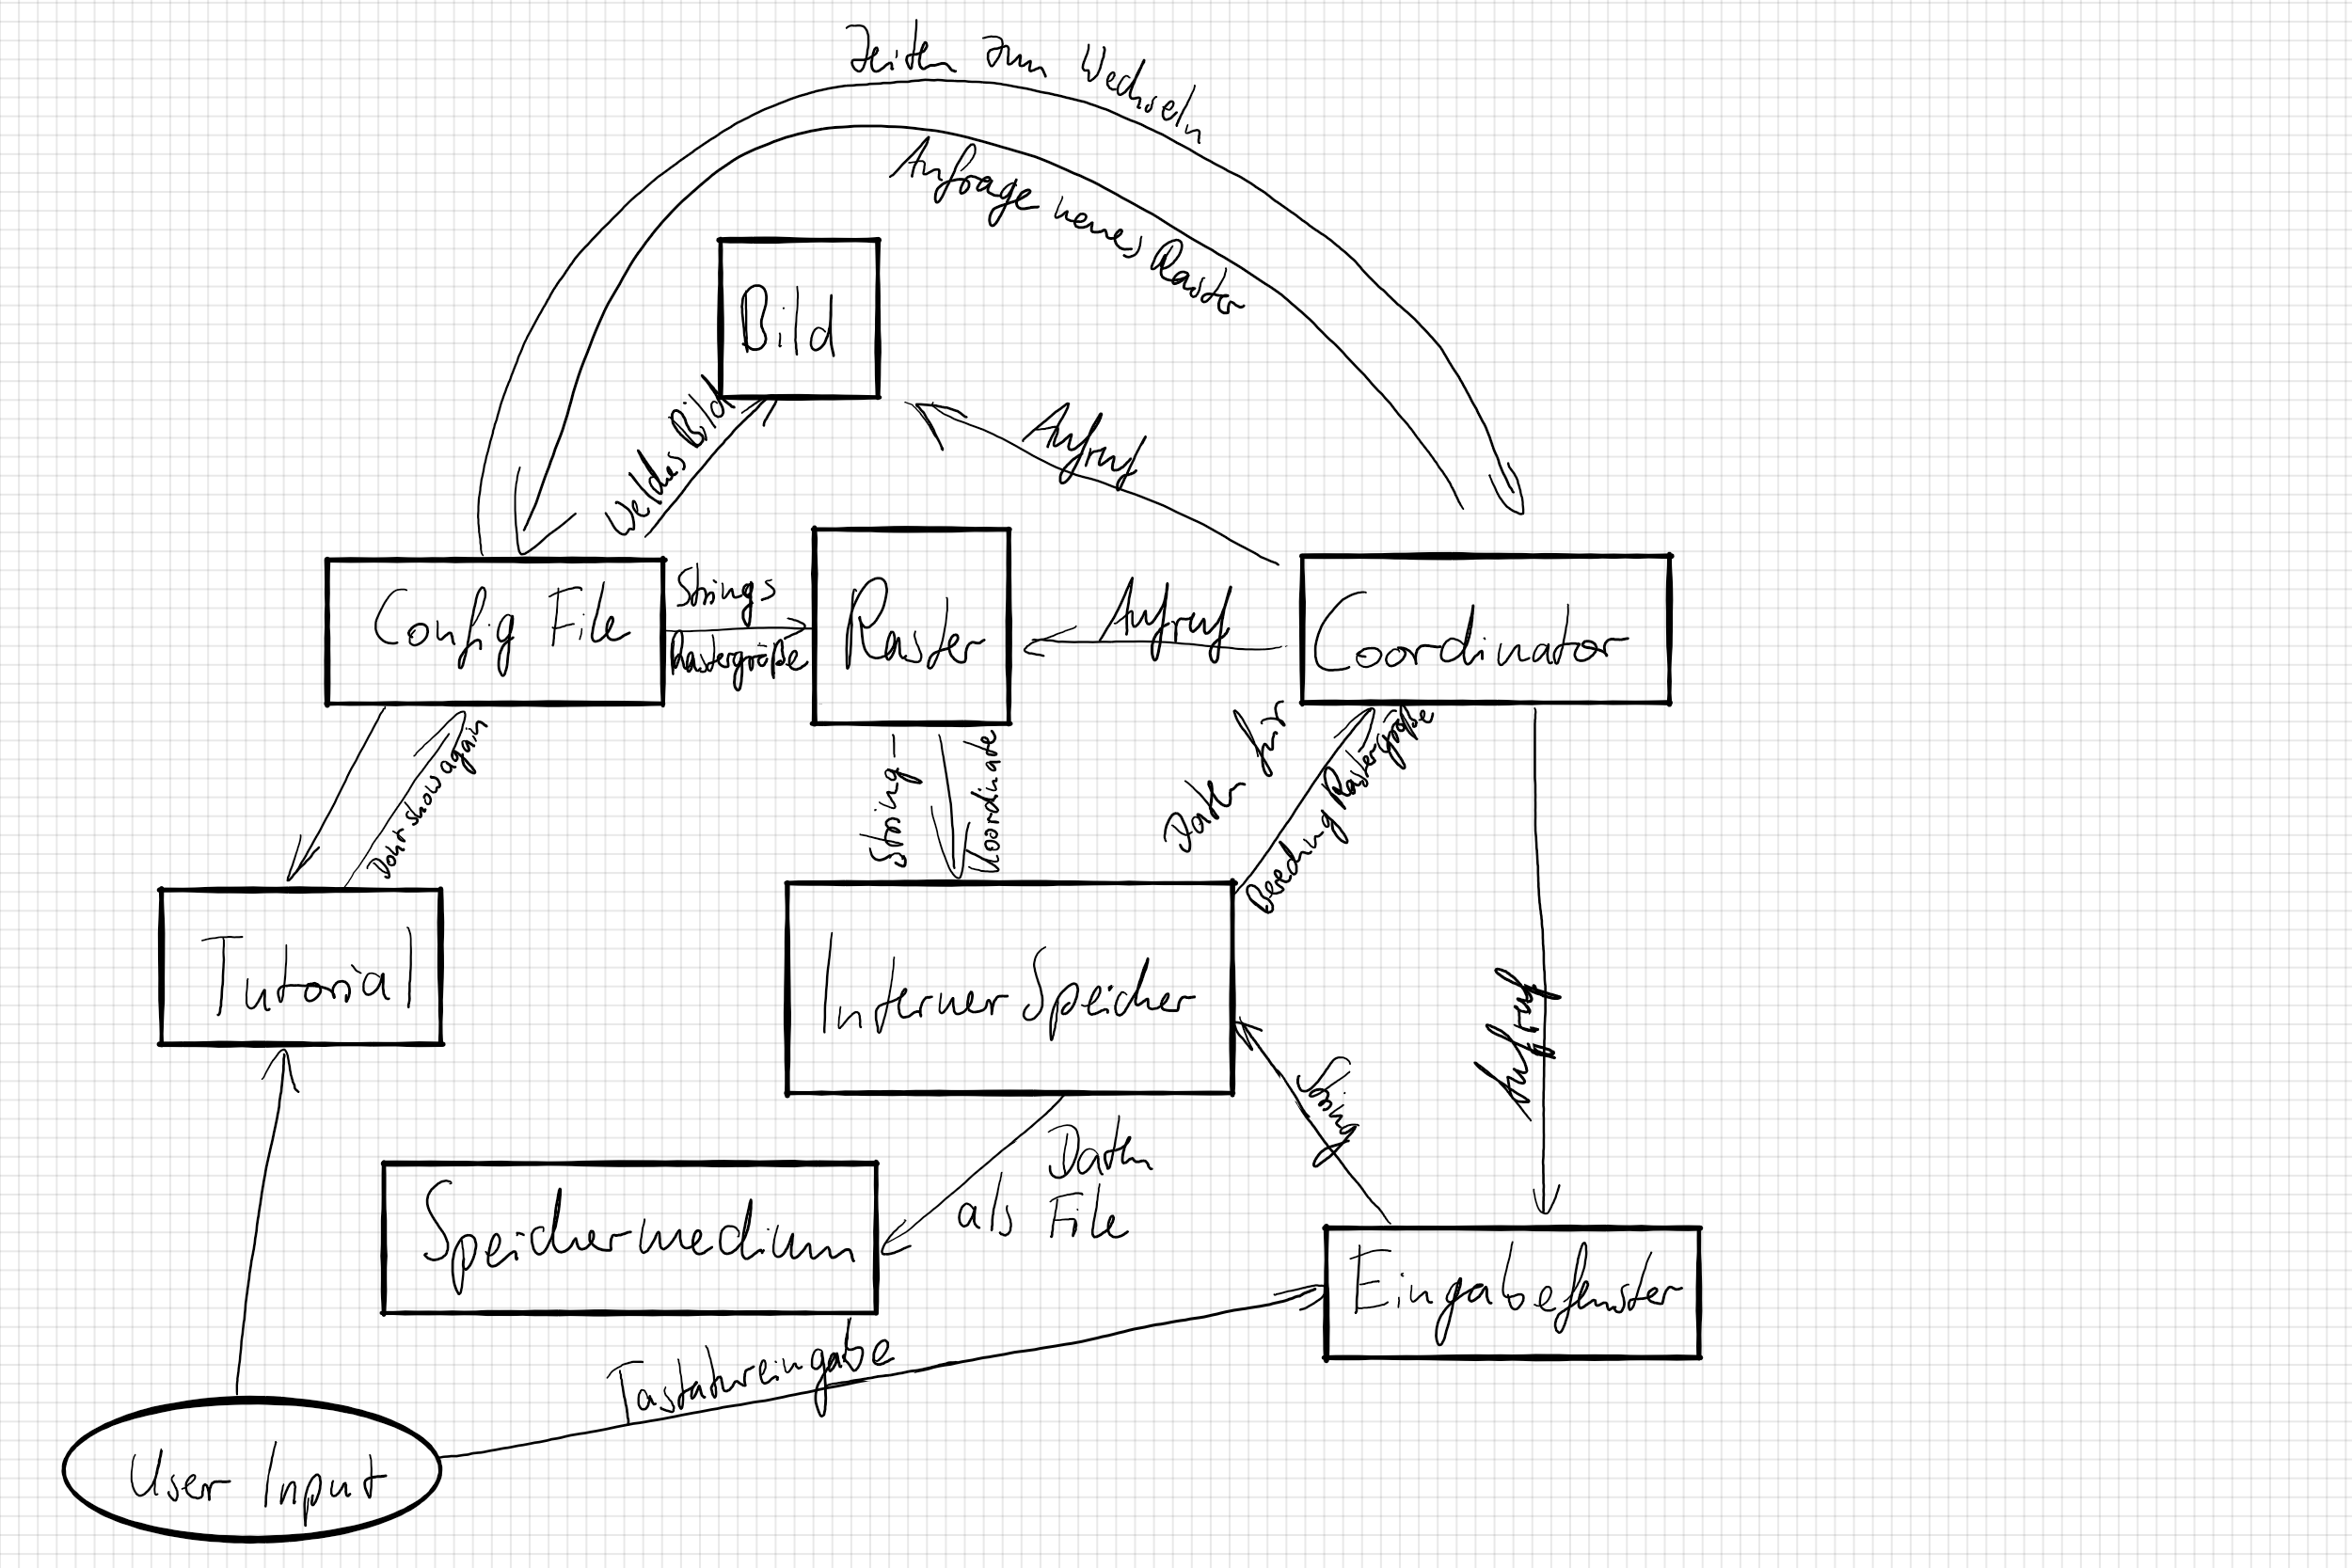 Zeiten zum Wechseln
Anfrage neues Raster
Bild
Welches Bild
Aufruf
Config File
Strings
Rastergröße
Raster
Aufruf
Coordinator
Dont show again
String-
Koordinate
Daten für
Berechnung Rastergröße
Tutorial
Interner Speicher
Aufruf
String
Daten
als File
Speichermedium
Eingabefenster
Tastatureingabe
User Input